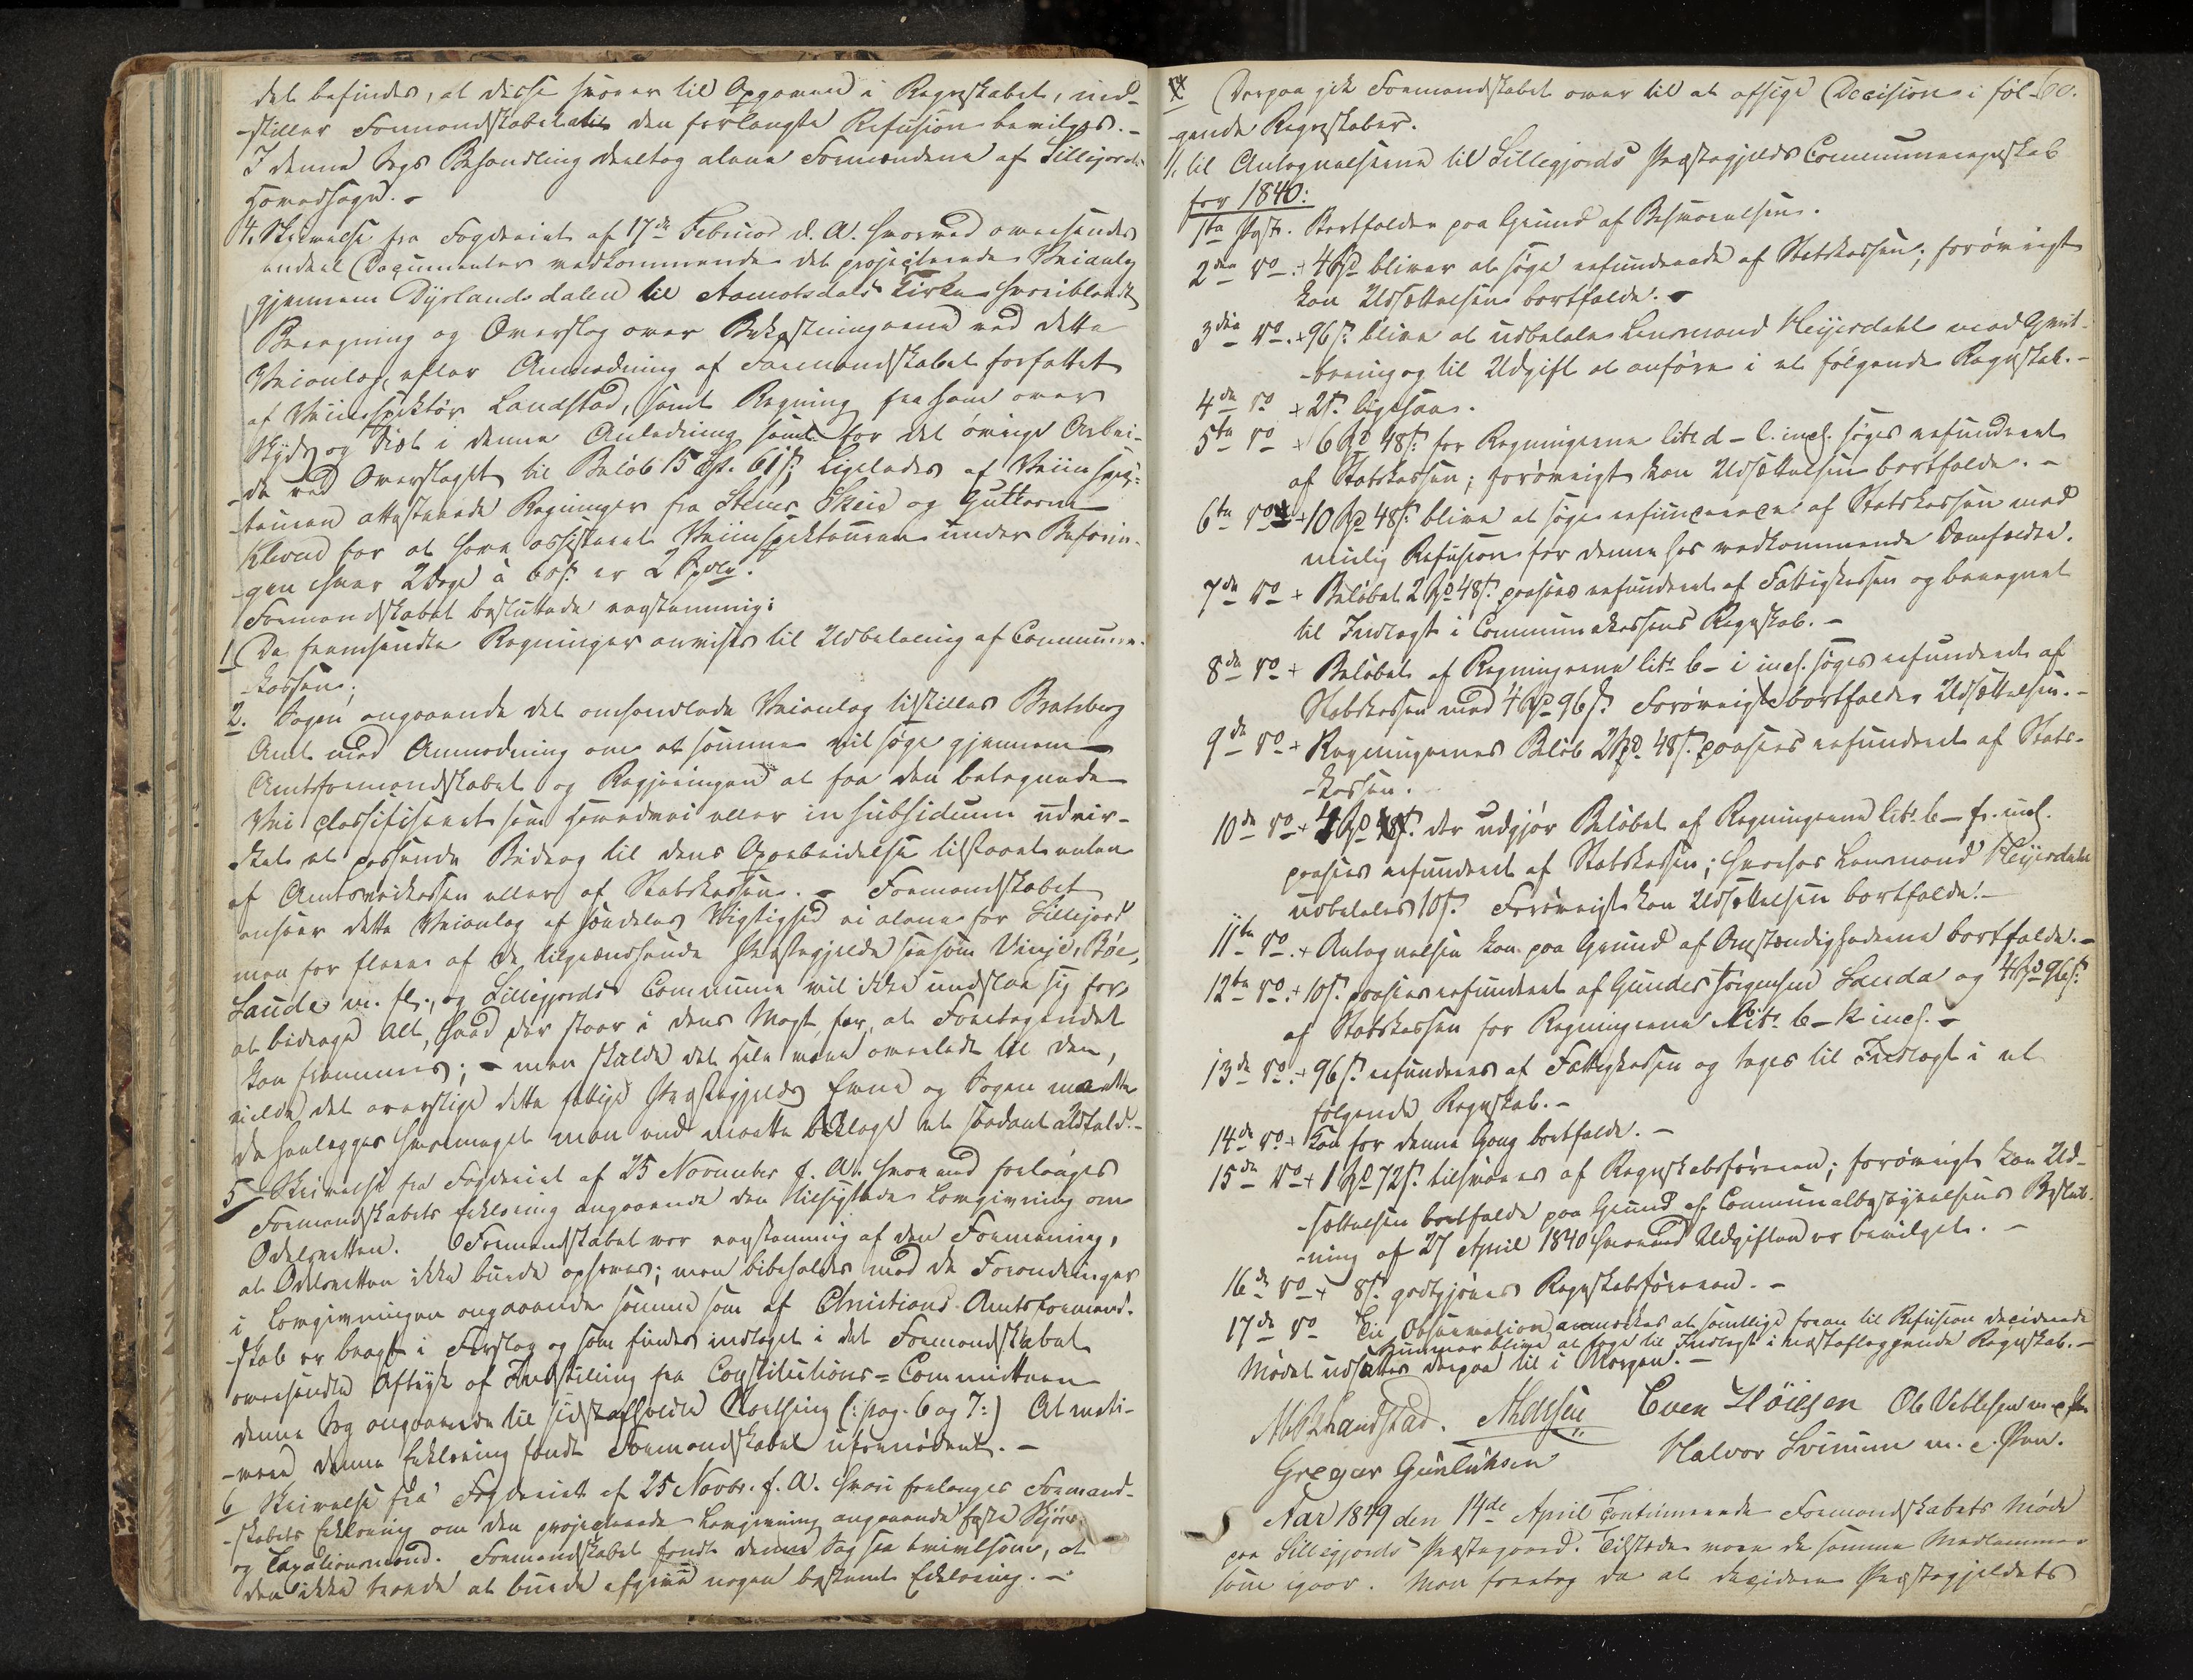 det befindes, at disse svarer til Opgaven i Regnskabet, ind-
-stiller Formandskabet at den forlangte Refusion bevilges. -
I denne Sags Behandling deeltog alene Formændene af Sillejords
Hovedsogn. -
4. Skrivelse fra Fogderiet af 17de Februar d. A. hvorved oversendes
endeel Documenter vedkommende det projecterede Veianlæg
gjennem Dyrlandsdalen til Aamotsdals Kirke hvoriblandt
Beregning og Overslag over Bekostningerne ved dette
Veianlæg, efter Anmodning af Formandskabet forfattet
af Veiinspektör Landstad, samt Regning fra ham over
Skyds og Diæt i denne Anledning samt for det övrige Arbei-
-de ved Overslaget til Beløb 15 Spd. 61 s; ligeledes af Veiinspek-
-teuren attesterede Regninger fra Stener Skeie og Guttorm
Kleven for at have assisteret Veiinspekteuren under Befarin-
-gen hver 2 Dage à 60 s. er 2 Spdlr.
Formandskabet besluttede eenstemmig:
1 De fremsendte Regninger anvises til Udbetaling af Commune-
-kassen;
2. Sagen angaaende det omhandlede Veianlæg tilstilles Bratsberg
Amt med Anmodning om at samme vil søge gjennem
Amtsformandskabet og Regjeringen at faa den betegnede
Vei classificeret som Hovedvei eller in subsidium udvir-
-ket et passende Bidrag til dens Oparbeidelse tilstaaet enten
af Amtsveikassen eller af Statskassen. - Formandskabet
anseer dette Veianlæg af særdeles Vigtighed ei alene for Sillejord
men for flere af de tilgrændsende Præstegjelde saasom Vinje, Böe,
Laurdal m. fl., og Sillejords Commune vil ikke undslaae sig for
at bidrage alt, hvad der staar i dens Magt for, at Foretagendet
kan fremmes; - men skulde det hele være overladt til den,
vilde det overstige dette fattige Præstegjelds Evne og Sagen maatte
da henlægges hvormeget man end maatte beklage et saadant Udfald. -
5 Skrivelse fra Fogderiet af 25 November f. A. hvorved forlanges
Formandskabets Erklæring angaaende den tilsigtede Lovgivning om
Odelsretten. Formandskabet var eenstemmig af den Formening,
at Odelsretten ikke burde ophæves; men bibeholdes med de Forandringer
i Lovgivningen angaaende samme som af Christians Amtsformand-
-skab er bragt i Forslag og som findes indtaget i det Formandskabet
oversendte Aftryk af Indstilling fra Constitutions-Committeen
denne Sag angaaende til sidstafholdte Storthing (: pag. 6 og 7:) At moti-
-vere denne Erklæring fandt Formandskabet ufornödent. -
6 Skrivelse fra Fogderiet af 25 Novbr. f. A. hvori forlanges Formand-
-skabets Erklæring om den projecterede Lovgivning angaaende faste Skjöns
og Taxationsmænd. Formandskabet fandt denne Sag saa tvivlsom, at
den ikke troede at burde afgive nogen bestemt Erklæring. -
Derpaa gik Formandskabet over til at afsige Decision i föl- 60.
-gende Regnskaber.
1. til Antegnelserne til Sillegjords Præstegjelds Communeregnskab
for 1840:
1ste Post. Bortfalder paa Grund af Besvarelsen.
2den do. + 4 Spd bliver at søge refunderede af Statskassen; forövrigt
kan Udsættelsen bortfalde. -
3die do. + 96 s. blive at udbetale Lensmand Heyerdahl mod Qvit-
-tering og til Udgift at anføre i et følgende Regnskab. -
4de do + 2 s. ligesaa.
5te do + 6 Spd 48 s. for Regningerne litr d - l. incl. søges refunderet
af Statskassen; forövrigt kan Udsættelsen bortfalde. -
6te do + 10 Spd 48 s. blive at søge refunderede af Statskassen mod
mulig Refusion for denne hos vedkommende Domfældte.
7de do + Beløbet 2 Spd 48 s. paasees refunderet af Fattigkassen og beregnet
til Indtægt i Communekassens Regnskab. -
8de do + Beløbet af Regningerne litr. b - i incl. søges refunderet af
Statskassen med 4 Spd 96 s. Forövrigt bortfalder Udsættelsen. -
9de do + Regningernes Beløb 2 Spd. 48 s. paasees refunderet af Stats-
-kassen.
10de do + 4 Spd der udgjör Beløbet af Regningerne litr. b - f. incl.
paasees refunderet af Statskassen; hvorhos Lensmand Heyerdahl
udbetales 10 s. Forövrigt kan Udsættelsen bortfalde. -
11te do. + Antegnelsen kan paa Grund af Omstændighederne bortfalde. -
12te do. + 10 s. paasees refunderet af Gunder Jörgensen Landa og 4 Spd 96 s.
af Statskassen for Regningerne Litr. b - k incl. -
13de do. + 96 s. refunderes af Fattigkassen og tages til Indtægt i et
følgende Regnskab. -
14de do + Kan for denne Gang bortfalde. -
15de do + 1 Spd 72 s. tilsvares af Regnskabsføreren; forövrigt kan Ud-
-sættelsen bortfalde paa Grund af Communalbestyrelsens Beslut-
-ning af 27 April 1840 hvorved Udgiften er bevilget. -
16de do + 8 s. godtgjöres Regnskabsføreren. -
17de do Til Observation anmærkes at samtlige foran til Refusion deciderede
Summer blive at tage til Indtægt i næstaflæggende Regnskab. -
Mødet udsættes derpaa til i Morgen. -
M B Landstad. Even Höljesen Ole Vetlesen m. p. Pen
Gregar Gunlüksen Halvor Svinum m. p. Pen.
Aar 1849 den 14de April Continuerede Formandskabets Møde
paa Sillegjords Præstegaard. Tilstede vare de samme Medlemmer
som igaar. Man foretog da at decidere Præstegjeldets